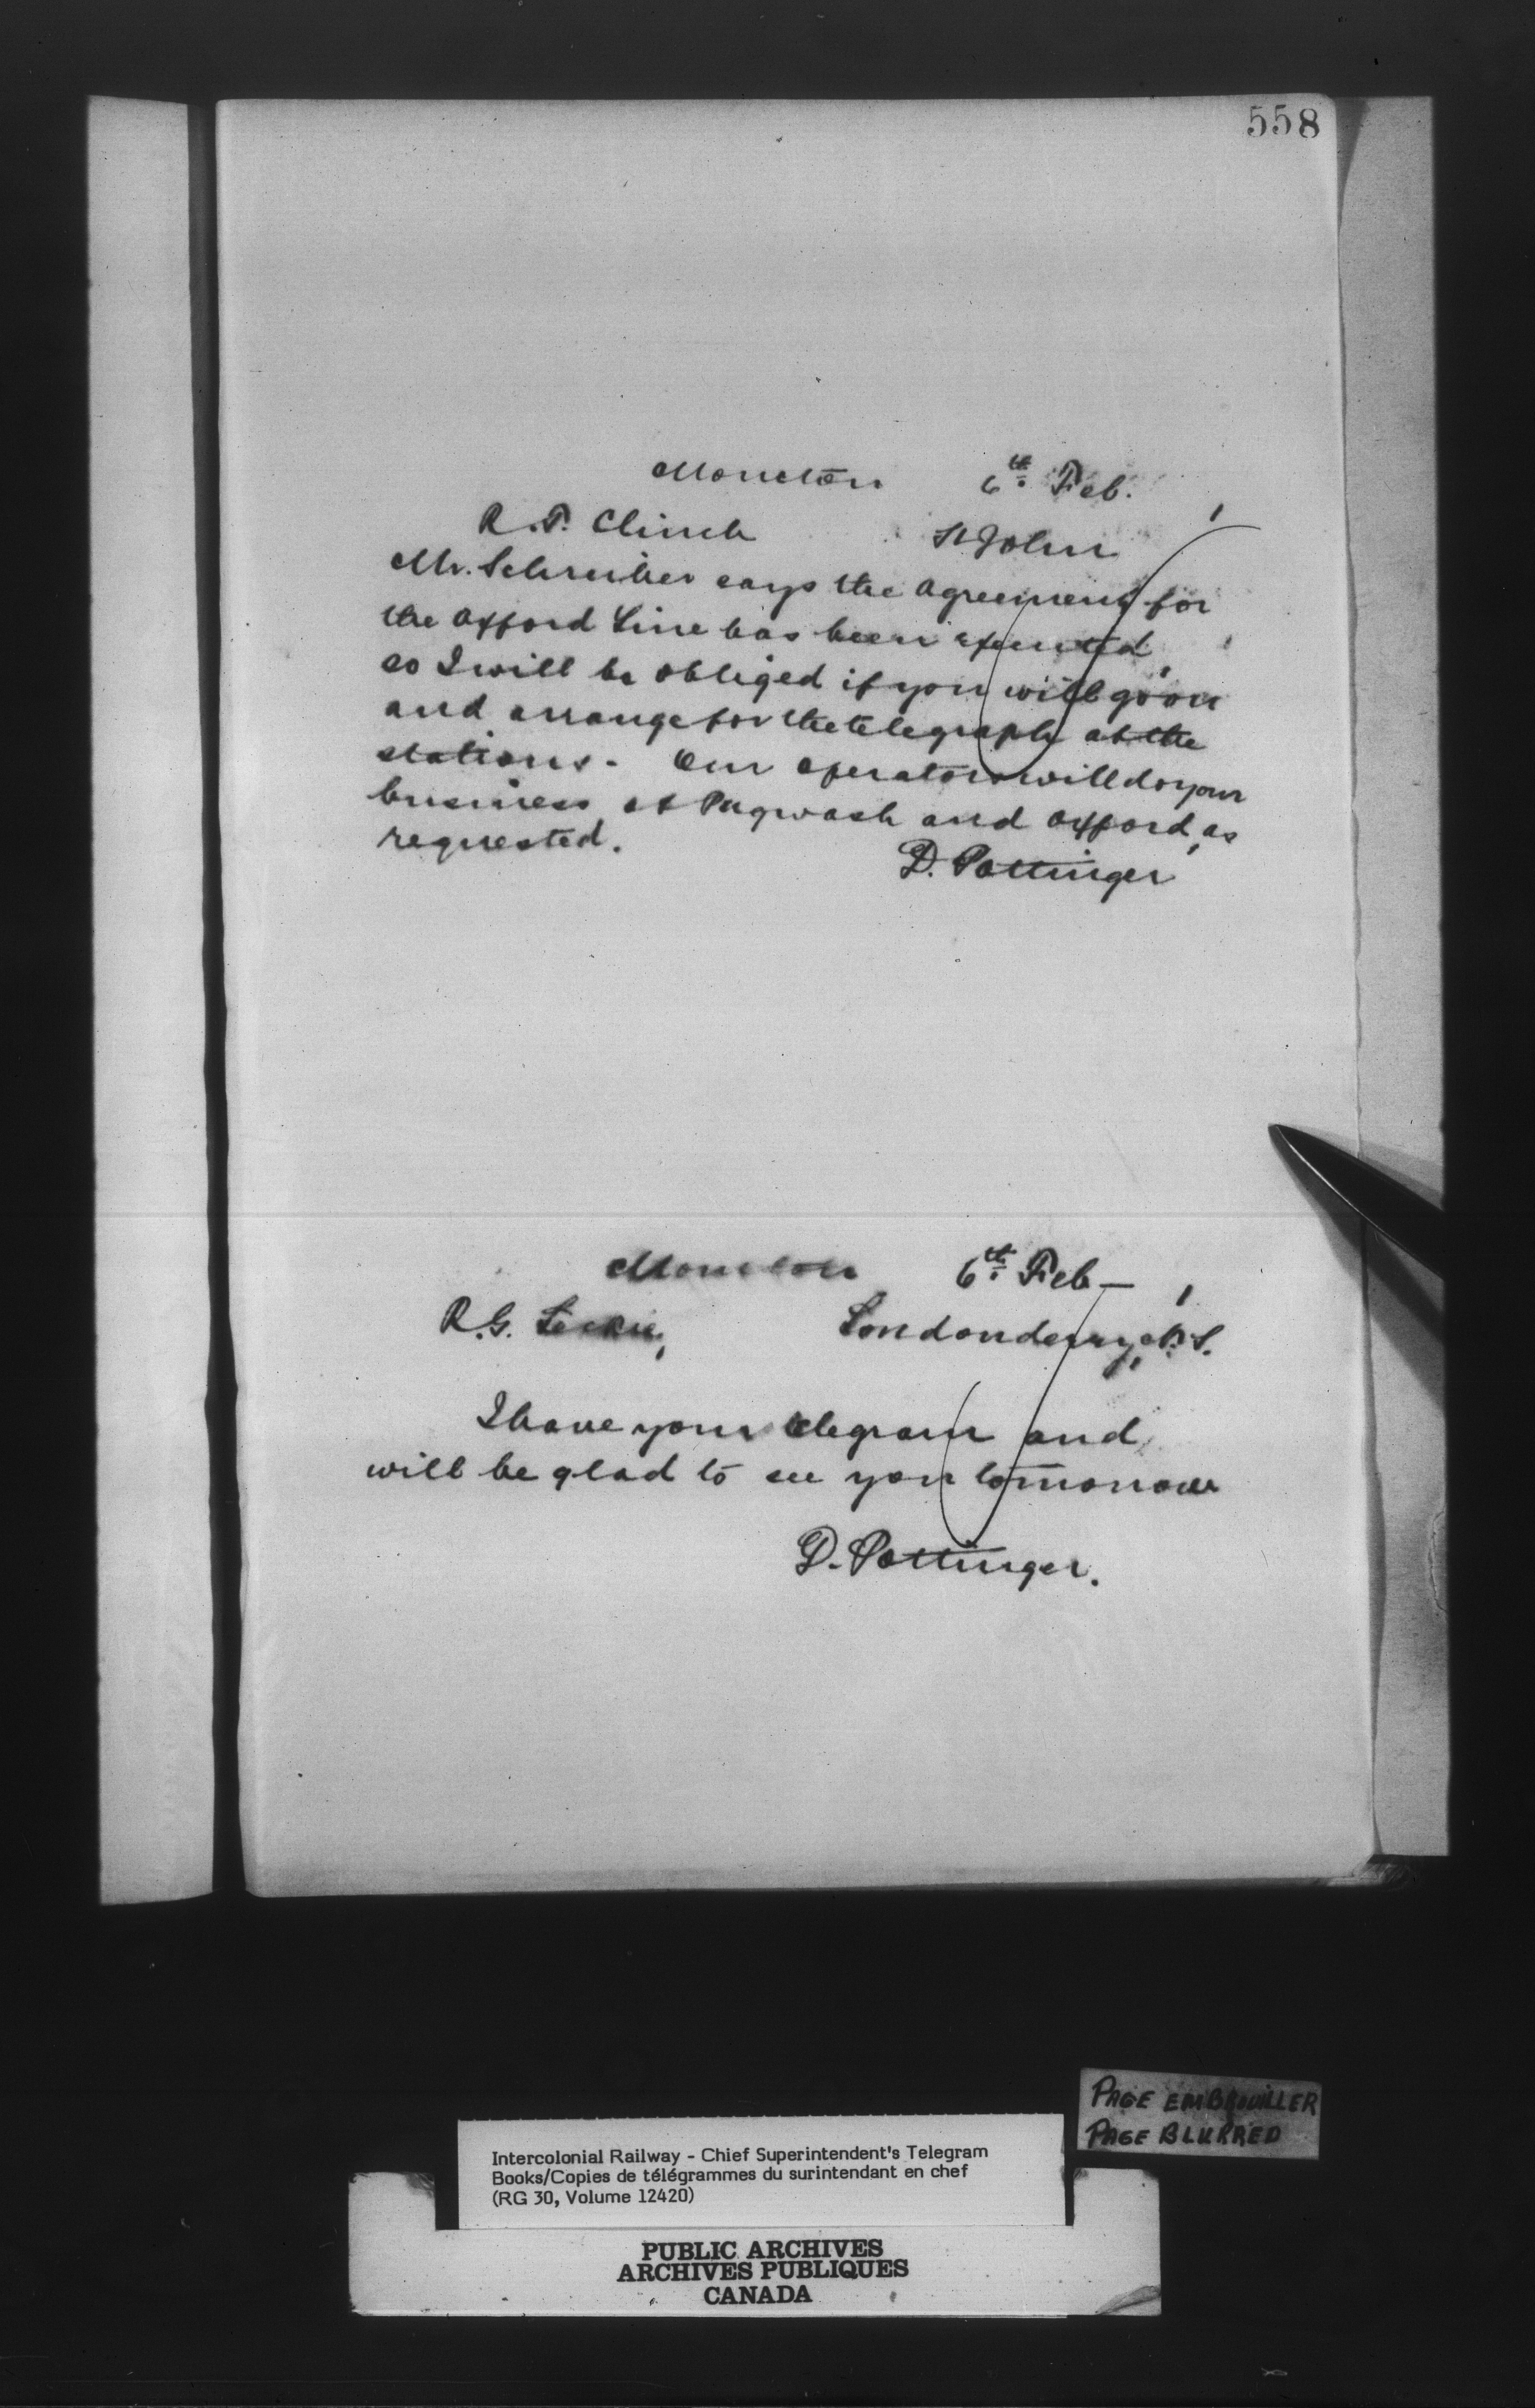 558
Moncton 6th Feb.
R.T. Clinch St John
Mr. Schreiber says the agreement for
the Oxford Line has been executed,
so I will be obliged if you will go on
and arrange for the telegraph at the
stations. Our operators will do your
business at Pugwash and Oxford, as
requested.
D. Pottinger
Moncton 6th Feb—
R.G. Leckie, Londonderry, N.S.
I have your telegram and
will be glad to see you tomorrow
D. Pottinger.
PAGE EMBROUILLER
PAGE BLURRED
Intercolonial Railway - Chief Superintendent's Telegram
Books/Copies de télégrammes du surintendant en chef
(RG 30, Volume 12420)
PUBLIC ARCHIVES
ARCHIVES PUBLIQUES
CANADA